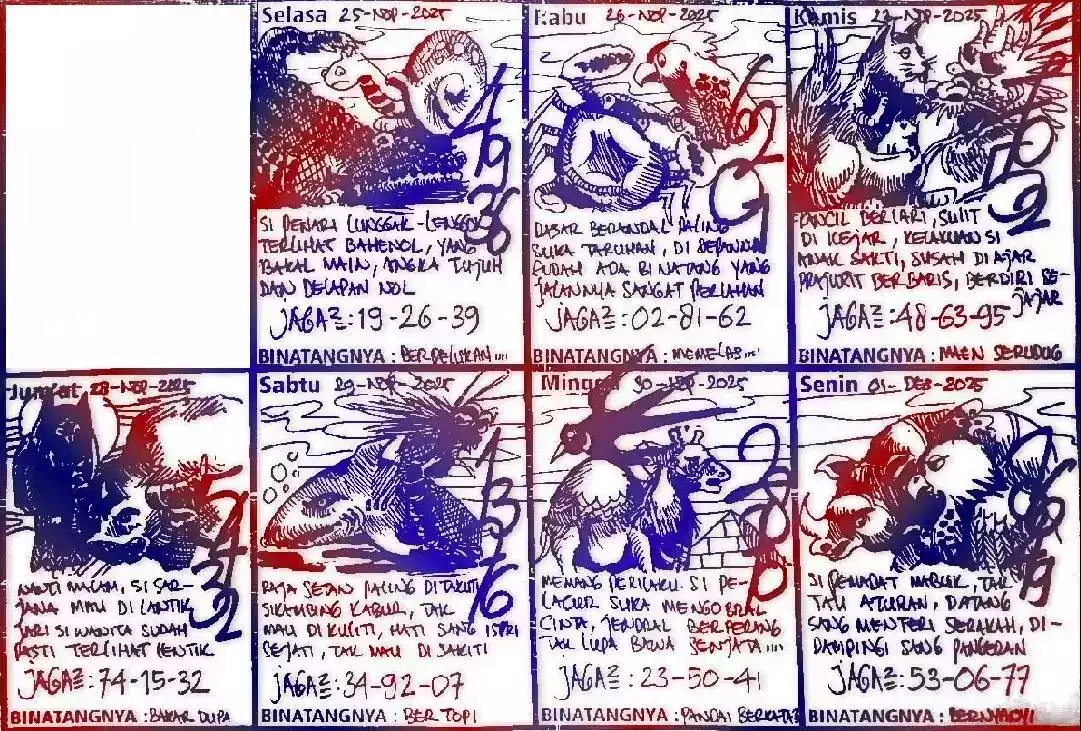 Selasa 25-NOP-2025
4
9
36
SI PENARI LUNGGAK-LENGGOK
TERLIHAT BAHENOL, YANG
BAKAL MAIN, ANGKA TUJUH
DAN DELAPAN NOL
JAGA2=:19-26-39
BINATANGNYA : BERPELISKAN....
Rabu 26-NOP-2025
6
2
DASAR BERANDAL PALING
SUKA TARUHAN, DI DEPANNYA
SUDAH ADA BINATANG YANG
JALANNYA SANGAT PERLAHAN
JAGA2=:02-81-62
BINATANGNYA : MEMELAS....
Kamis 27-NOP-2025
KANCIL BERLARI, SULIT
DI KEJAR, KELAKUAN SI
ANAK SAKTI, SUSAH DI AJAR
PRAJURIT BERBARIS, BERDIRI SE-
JAJAR
JAGA2=:48-63-95
BINATANGNYA : MAEN SERUDUG
Jum'at 28-NOP-2025
32
NANTI MALAM, SI SAR-
JANA MAU DI LANTIK
JARI SI WANITA SUDAH
PASTI TERLIHAT LENTIK
JAGA2=:74-15-32
BINATANGNYA : BAKAR DUPA
Sabtu 29-NOP-2025
1
3
76
RAJA SETAN PALING DI TAKUTI
SIKAMBING KABUR, TAK
MAU DI KULITI, HATI SANG ISTRI
SEJATI, TAK MAU DI SAKITI
JAGA2=:34-92-07
BINATANGNYA : BERTOPI
Minggu 30-NOP-2025
2
8
MEMANG PERILAKU SI PE-
LACUR SUKA MENGOBRAL
CINTA, JENDRAL BERPERANG
TAK LUPA BAWA SENJATA....
JAGA2=:23-50-41
BINATANGNYA : PANDAI BERKATA2
Senin 01-DEB-2025
SI PEMADAT MABUK, TAK
TAU ATURAN, DATANG
SANG MENTERI SERAKAH, DI-
DAMPINGI SANG PANGERAN
JAGA2=:53-06-77
BINATANGNYA : BERNYANYI